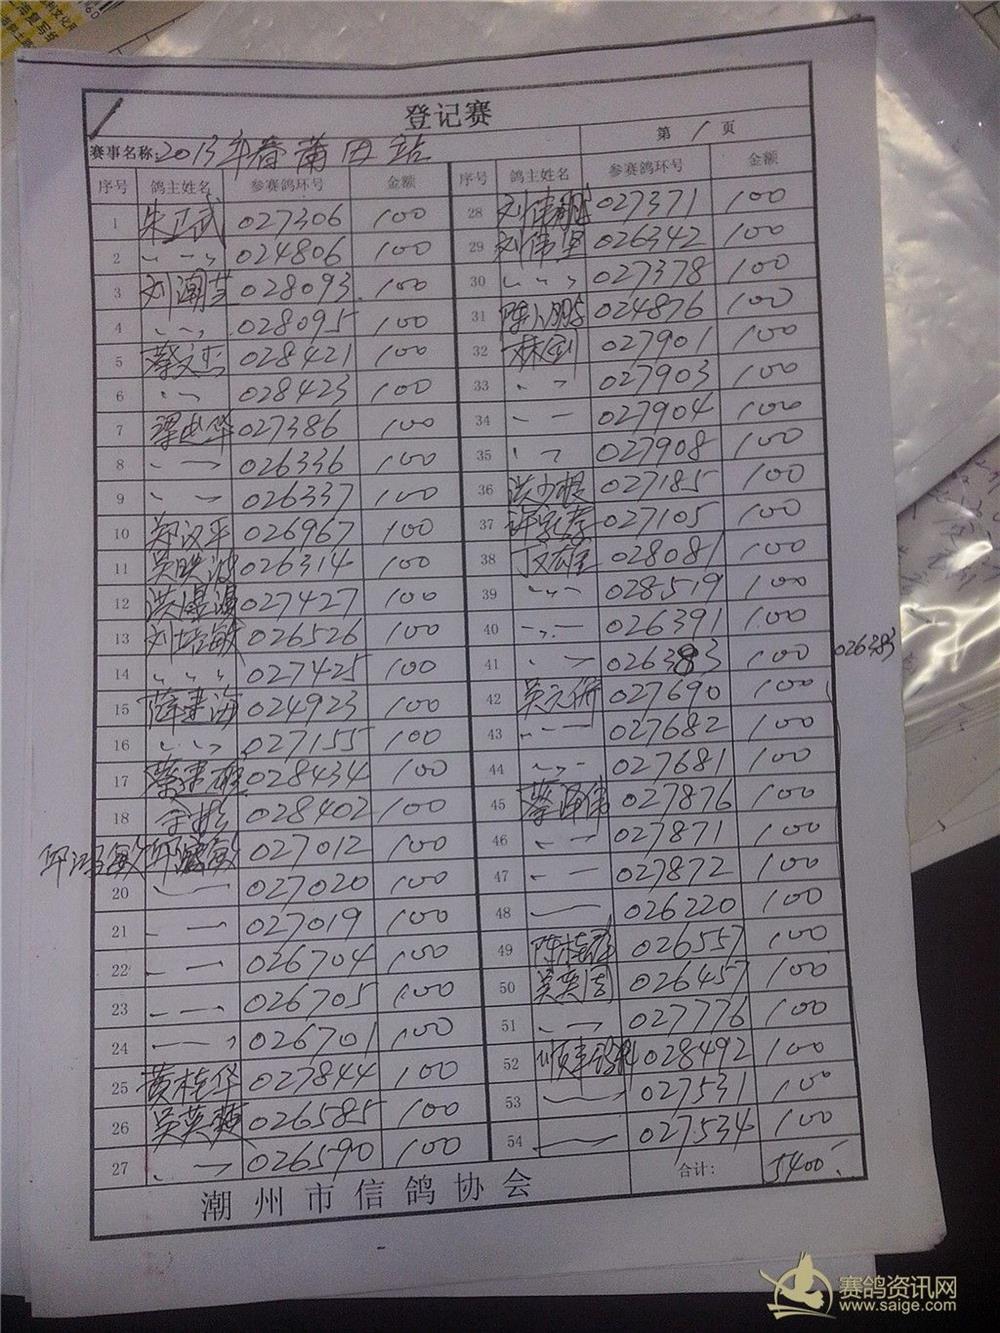 登记赛
赛事名称:2013年春莆田站 第1页
序号 鸽主姓名 参赛鸽环号 金额
1 朱卫武 027306 100
2 〃 024806 100
3 刘潮 028093 100
4 〃 028095 100
5 蔡文杰 028421 100
6 〃 028423 100
7 027386 100
8 〃 026336 100
9 〃 026337 100
10 郑汉平 026967 100
11 吴映 026314 100
12 洪 027427 100
13 刘培敏 026526 100
14 〃 027425 100
15 薛建海 024923 100
16 〃 027155 100
17 蔡建雄 028434 100
18 028402 100
邱鸿敏 邱鸿敏 027012 100
20 〃 027020 100
21 〃 027019 100
22 〃 026704 100
23 〃 026705 100
24 〃 026701 100
25 黄桂华 027844 100
26 吴英 026585 100
27 〃 026590 100
序号 鸽主姓名 参赛鸽环号 金额
28 刘伟鹏 027371 100
29 刘伟坚 026342 100
30 〃 027378 100
31 陈小鹏 024876 100
32 林剑 027901 100
33 〃 027903 100
34 〃 027904 100
35 〃 027908 100
36 洪少 027185 100
37 许 027105 100
38 丁文雄 028081 100
39 〃 028519 100
40 〃 026391 100
41 〃 026383 100 026383
42 吴元 027690 100
43 〃 027682 100
44 〃 027681 100
45 蔡泽伟 027876 100
46 〃 027871 100
47 〃 027872 100
48 〃 026220 100
49 陈桂 026557 100
50 吴奕 026457 100
51 〃 027776 100
52 顺丰 028492 100
53 〃 027531 100
54 〃 027534 100
合计: 5400
潮州市信鸽协会
赛鸽资讯网
www.saige.com